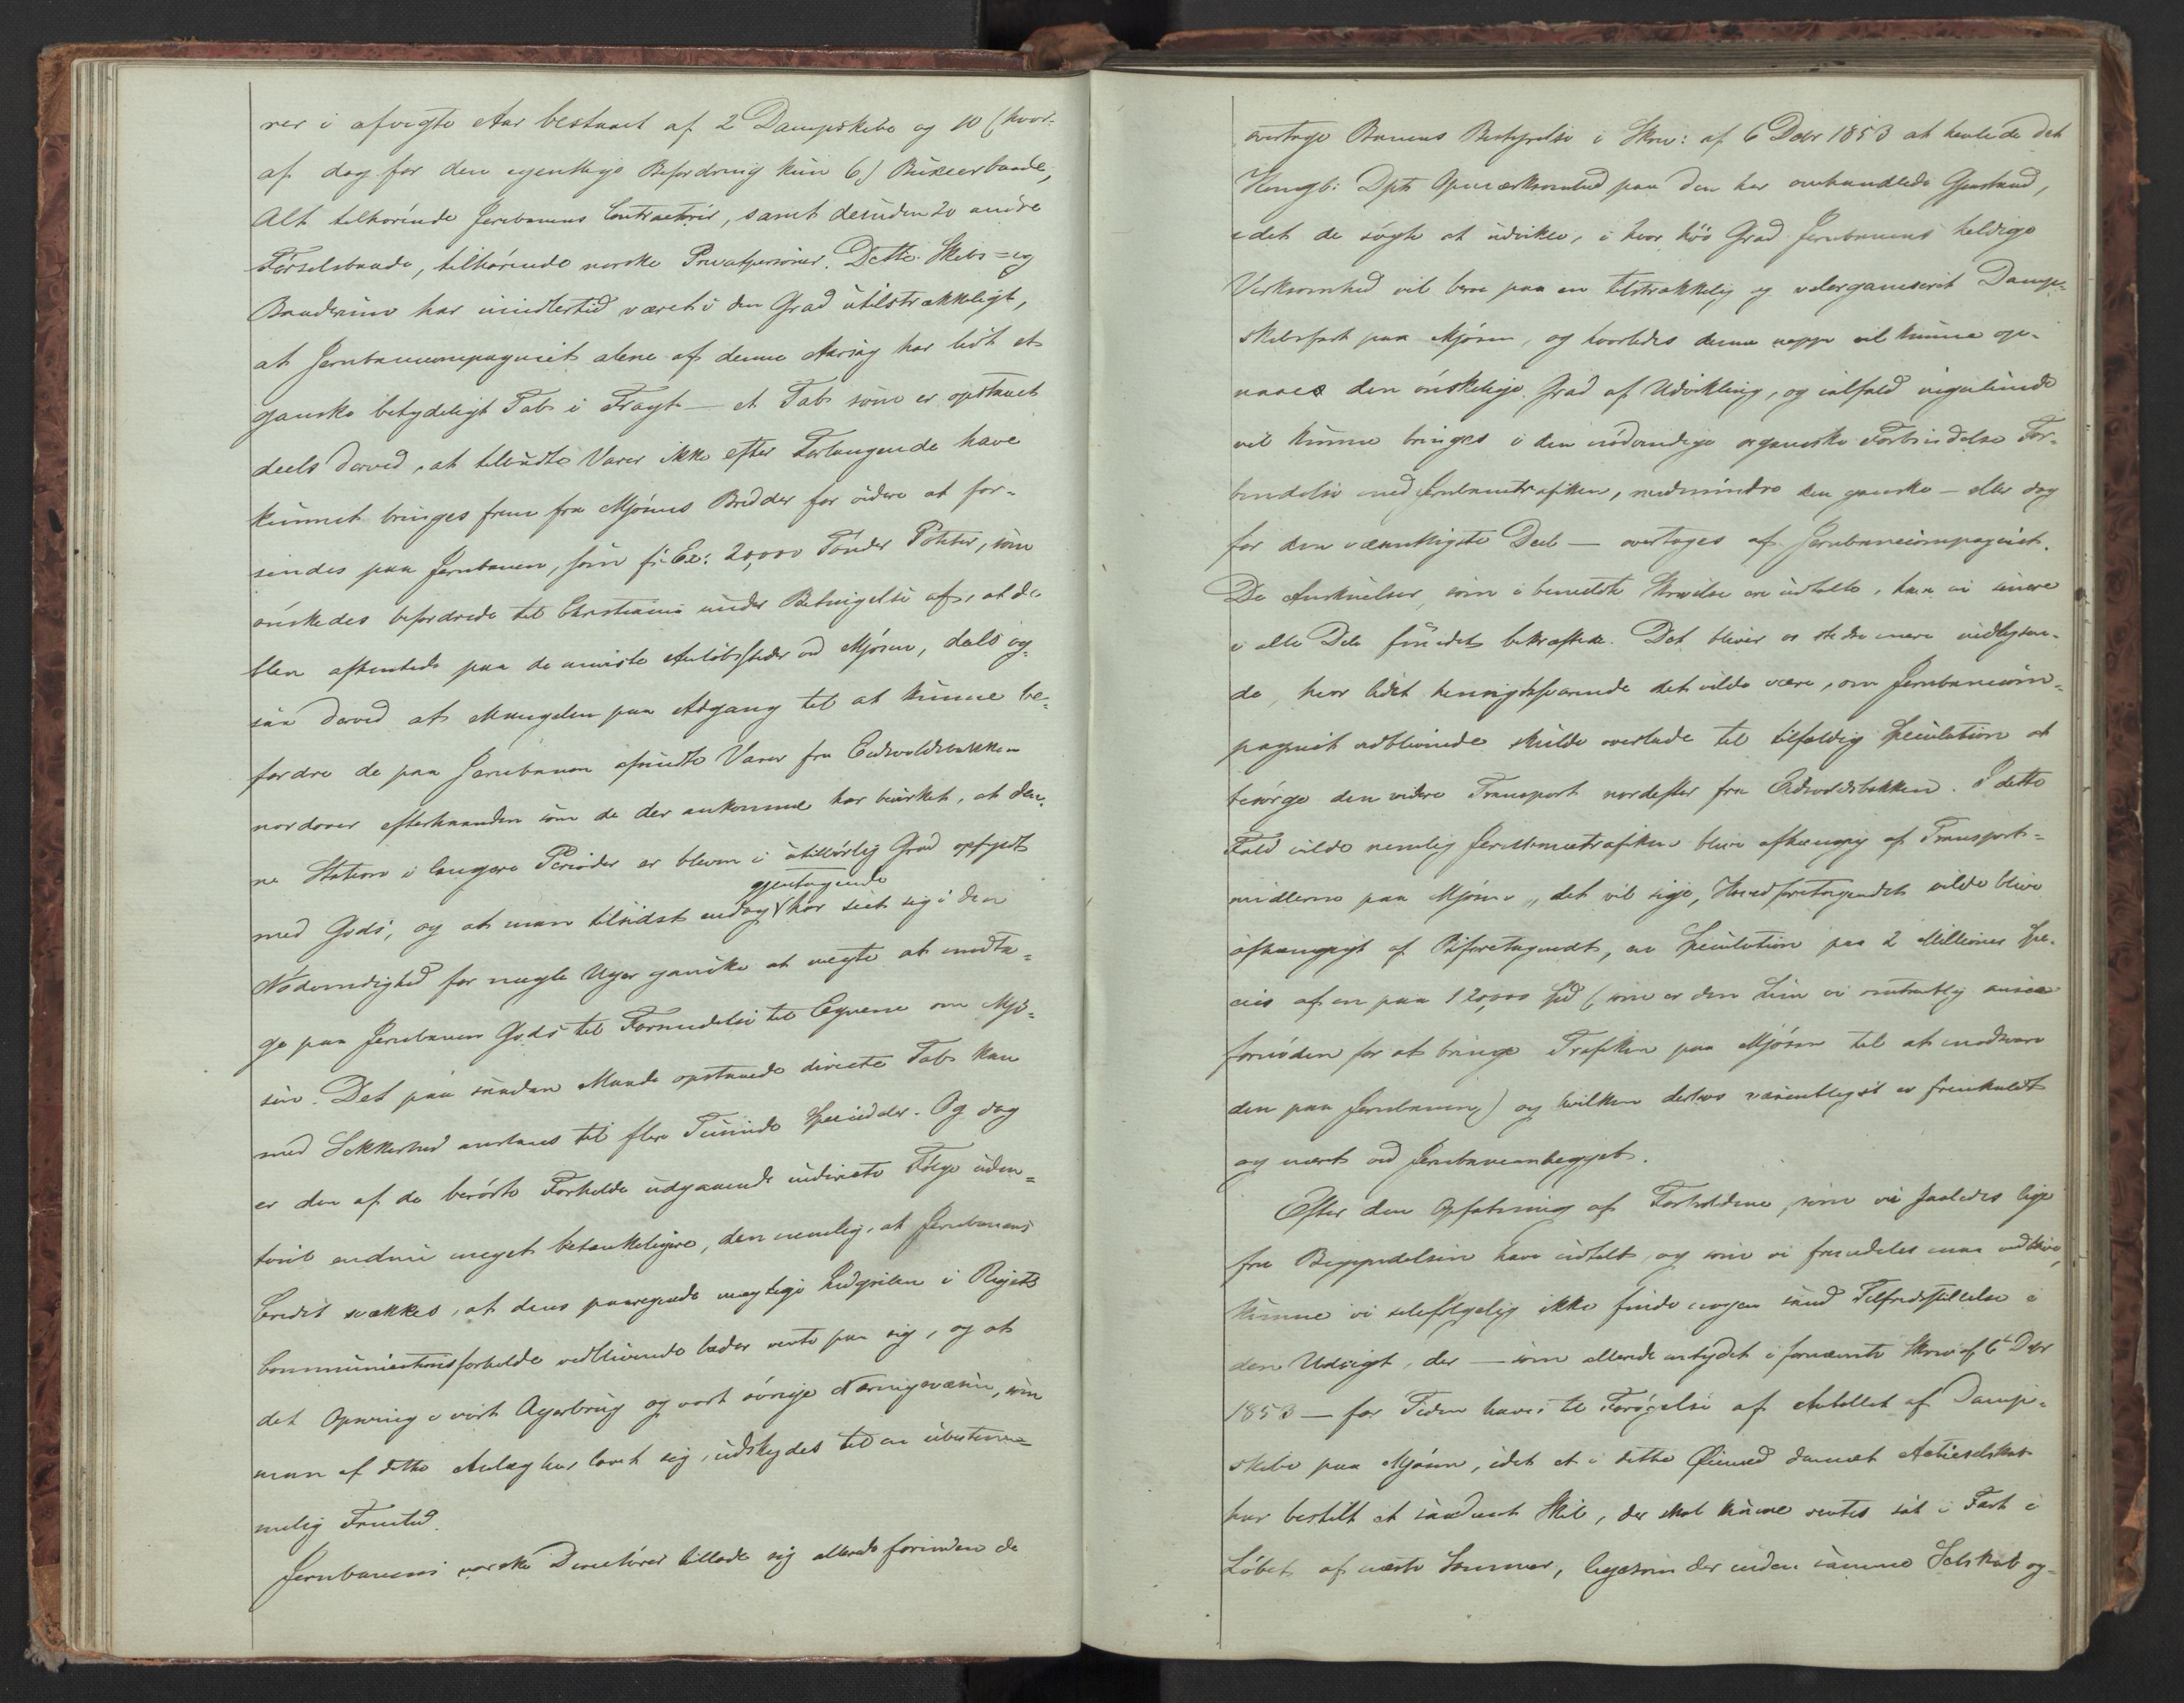 rer i afvigte Aar bestaaet af 2 Dampskibe og 10 (hvor-
af dog for den egentlige Befordring kun 6) Buxeerbaade,
Alt tilhørende Jernbanens Contractør, samt desuden 20 andre
Førselsbaade, tilhørende norske Privatpersoner. Dette Skibs- og
Baaderum har imidlertid været i den Grad utilstrækkeligt,
at Jernbanecompagniet alene af denne Aarsag har lidt et
ganske betydeligt Tab i Fragt — et Tab som er opstaaet
deels derved, at tilbudte Varer ikke efter Forlangende have
kunnet bringes frem fra Mjøsens Bredder for videre at for-
sendes paa Jernbanen, som f: Ex: 20,000 Tønder Poteter, som
ønskedes befordrede til Christiania under Betingelse af, at de
blev afhentede paa de anviste Anløbssteder ved Mjøsen, dels og-
saa derved at Mangelen paa Adgang til at kunne be-
fordre de paa Jernbanen afsendte Varer fra Eidsvoldsbakken
nordover efterhaanden som de der ankomme har bevirket, at den-
ne Station i længere Perioder er bleven i utilbørlig Grad opfyldt
med Gods, og at man tilsidst endog gjentagende har seet sig i den
Nødvendighed for nogle Uger ganske at negte at modta-
ge paa Jernbanen Gods til Forsendelse til Egnene om Mjø-
sen. Det paa saadan Maade opstaaede directe Tab kan
med Sikkerhed anslaaes til flere Tusinde Speciedaler. Og dog
er den af de berørte Forholde udgaaende indirecte Følge uden-
tvivl endnu meget betænkeligere, den nemlig, at Jernbanens
Credit svækkes, at dens paaregnede mægtige Indgriben i Rigets
Communicationsforholde vedblivende lader vente paa sig, og at
det Opsving i vort Agerbrug og vort øvrige Næringsvæsen, som
man af dette Anlæg har lovet sig, udskydes til en ubestem-
melig Fremtid.
Jernbanens norske Directører tillode sig allerede forinden de
overtoge Banens Bestyrelse i Skriv: af 6 Decbr 1853 at henlede det
Kongl: Dpts Opmærksomhed paa den her omhandlede Gjenstand,
idet de søgte at udvikle, i hvor høi Grad Jernbanens heldige
Virksomhed vil bero paa en tilstrækkelig og velorganiseret Damp-
skibsfart paa Mjøsen, og hvorledes denne neppe vil kunne op-
naae den ønskelige Grad af Udvikling, og ialfald ingenlunde
vil kunne bringes i den nødvendige organiske Forbindelse For-
bindelse med Jernbanetrafiken, medmindre den ganske — eller dog
for den væsentligste Deel — overtages af Jernbanecompagniet.
De Anskuelser, som i bemeldte Skrivelse ere udtalte, have vi senere
i alle Dele fundet bekræftede. Det bliver os stedse mere indlysen-
de, hvor lidet hensigtssvarende det vilde være, om Jernbanecom-
pagniet vedblivende skulde overlade til tilfældig Speculation at
besørge den videre Transport nordefter fra Eidsvoldsbakken. I dette
Fald vilde nemlig Jernbanetrafiken blive afhængig af Transport-
midlerne paa Mjøsen, det vil sige, Hovedforetagendet vilde blive
afhængigt af Biforetagendet, en Speculation paa 2 Millioner Spe-
cies af en paa 120,000 Spd (som er den Sum vi omtrentlig ansee
fornøden for at bringe Trafiken paa Mjøsen til at modsvare
den paa Jernbanen) og hvilken desuden væsentligst er fremkaldt
og næret ved Jernbaneanlægget.
Efter den Opfatning af Forholdene, som vi saaledes lige
fra Begyndelsen have udtalt, og som vi fremdeles maa vedblive,
kunne vi selvfølgelig ikke finde nogen sand Tilfredsstillelse i
den Udsigt, der — som allerede antydet i fornævnte Skriv. af 6te Decbr
1853 — for Tiden haves til Forøgelse af Antallet af Damp-
skibe paa Mjøsen, idet et i dette Øiemed dannet Actieselskab
har bestilt et saadant Skib, der skal kunne ventes sat i Fart i
Løbet af næste Sommer, ligesom der inden samme Selskab og-